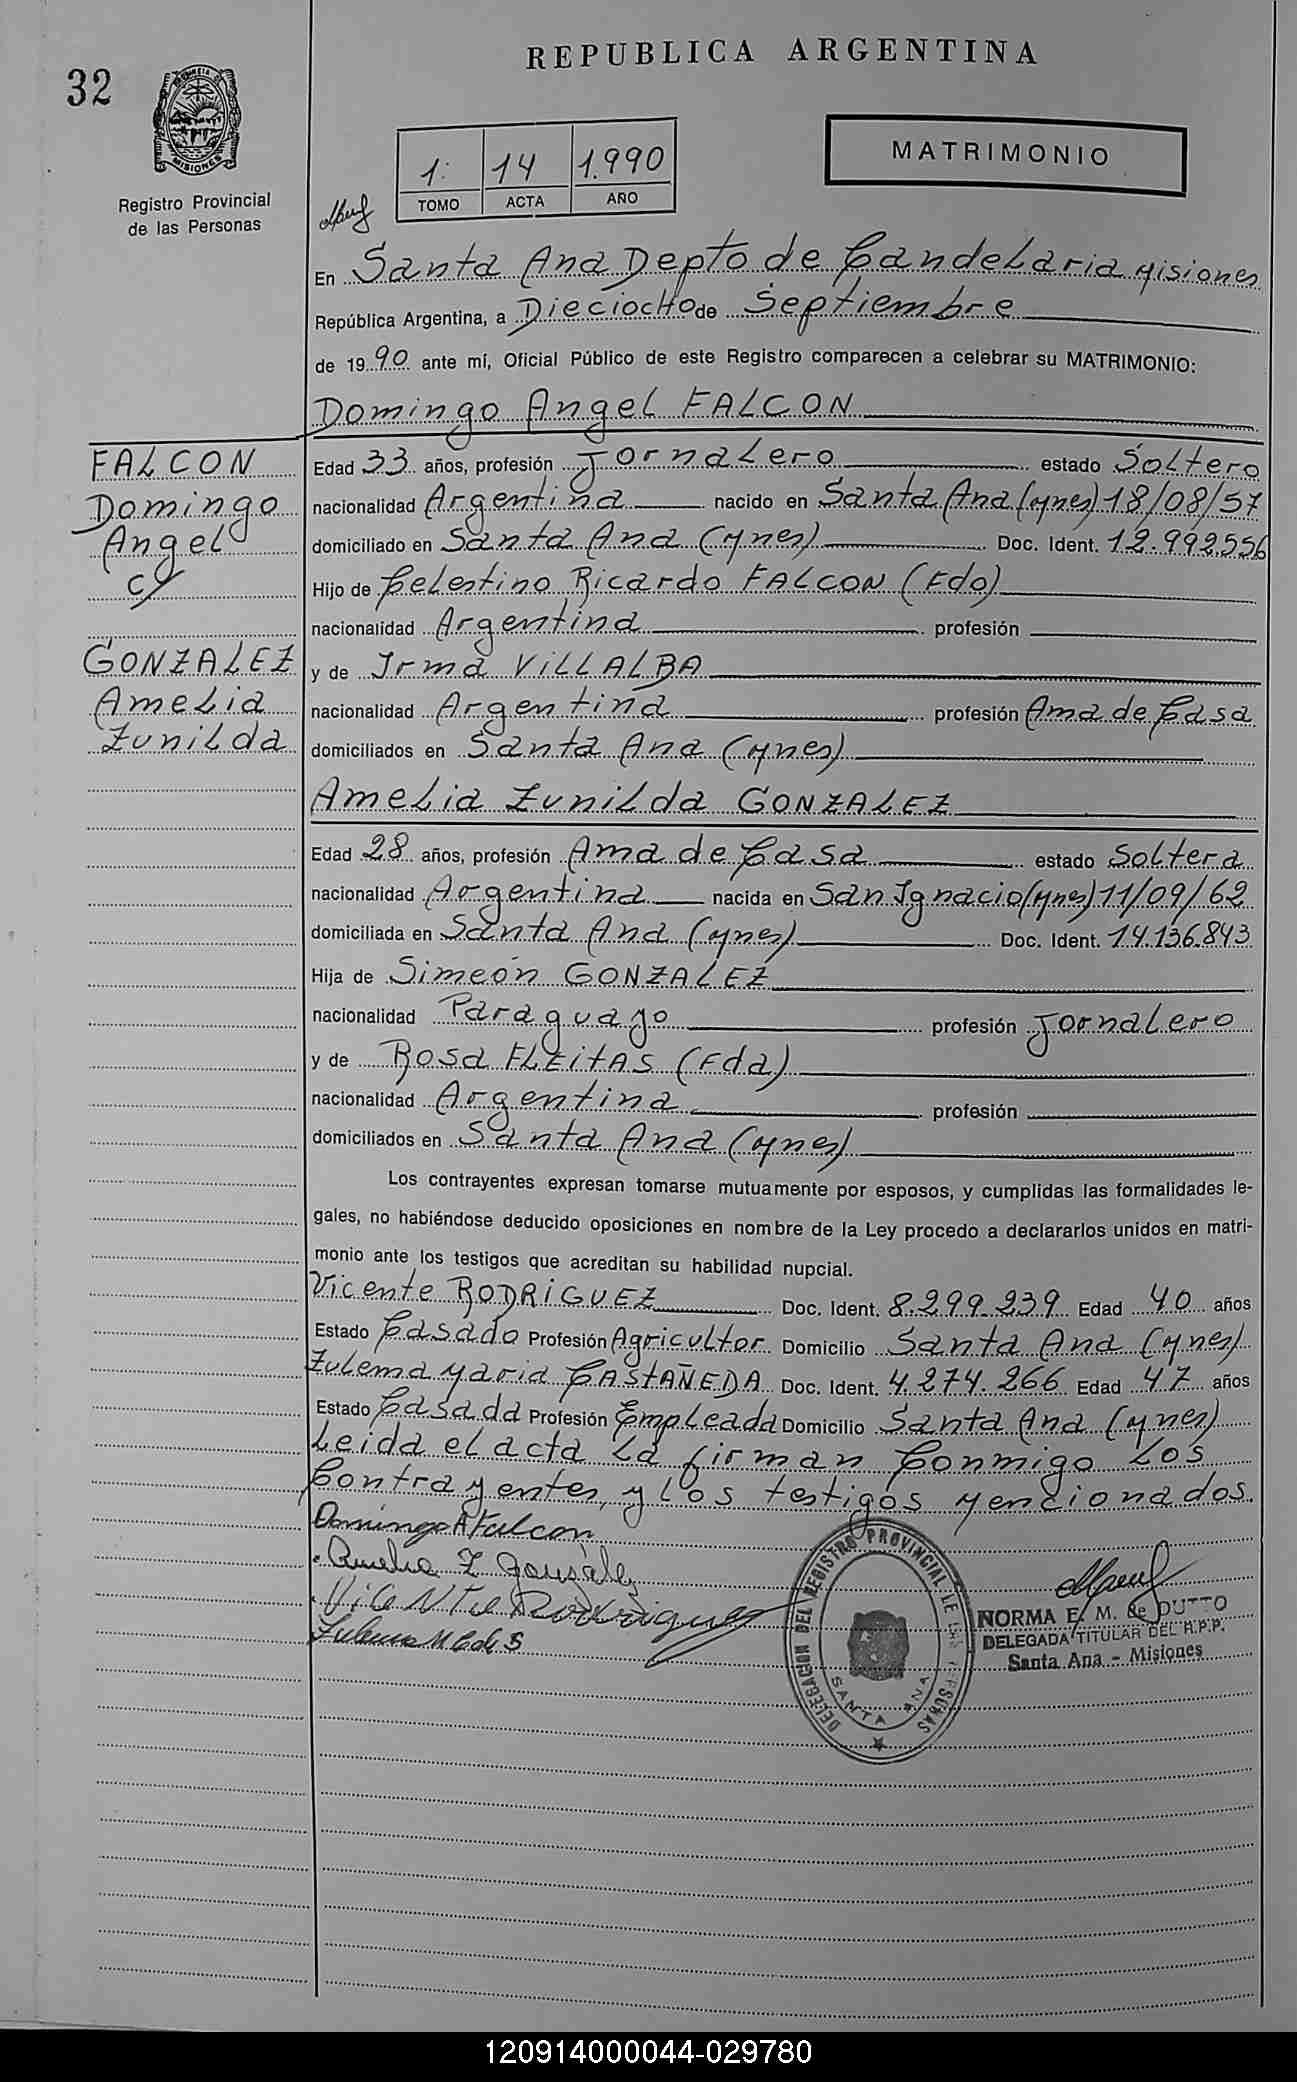 REPUBLICA ARGENTINA
32
MISIONES
Registro Provincial
de las Personas
1: 14 1.990
TOMO ACTA AÑO
MATRIMONIO
En Santa Ana Depto de Candelaria Misiones
República Argentina, a Dieciocho de Septiembre
de 1990 ante mí, Oficial Público de este Registro comparecen a celebrar su MATRIMONIO:
Domingo Angel FALCON
FALCON
Domingo
Angel
c/
GONZALEZ
Amelia
Zunilda
Edad 33 años, profesión Jornalero estado Soltero
nacionalidad Argentina nacido en Santa Ana (Mnes) 18/08/57
domiciliado en Santa Ana (Mnes) Doc. Ident. 12.992.556
Hijo de Celestino Ricardo FALCON (Fdo)
nacionalidad Argentina profesión
y de Irma VILLALBA
nacionalidad Argentina profesión Ama de Casa
domiciliados en Santa Ana (Mnes)
Amelia Zunilda GONZALEZ
Edad 28 años, profesión Ama de Casa estado Soltera
nacionalidad Argentina nacida en San Ignacio (Mnes) 11/09/62
domiciliada en Santa Ana (Mnes) Doc. Ident. 14.136.843
Hija de Simeón GONZALEZ
nacionalidad Paraguayo profesión Jornalero
y de Rosa FLEITAS (Fda)
nacionalidad Argentina profesión
domiciliados en Santa Ana (Mnes)
Los contrayentes expresan tomarse mutuamente por esposos, y cumplidas las formalidades le-
gales, no habiéndose deducido oposiciones en nombre de la Ley procedo a declararlos unidos en matri-
monio ante los testigos que acreditan su habilidad nupcial.
Vicente RODRIGUEZ Doc. Ident. 8.299.239 Edad 40 años
Estado Casado Profesión Agricultor Domicilio Santa Ana (Mnes)
Zulema Maria CASTAÑEDA Doc. Ident. 4.274.266 Edad 47 años
Estado Casada Profesión Empleada Domicilio Santa Ana (Mnes)
Leida el acta La firman Conmigo Los
Contrayentes, y Los testigos Mencionados.
Domingo A Falcon
Amelia Z Gonzalez
Vicente Rodriguez
DELEGACION DEL REGISTRO PROVINCIAL DE LAS PERSONAS
SANTA ANA
NORMA E. M. de DUTTO
DELEGADA TITULAR DEL R.P.P.
Santa Ana - Misiones
120914000044-029780